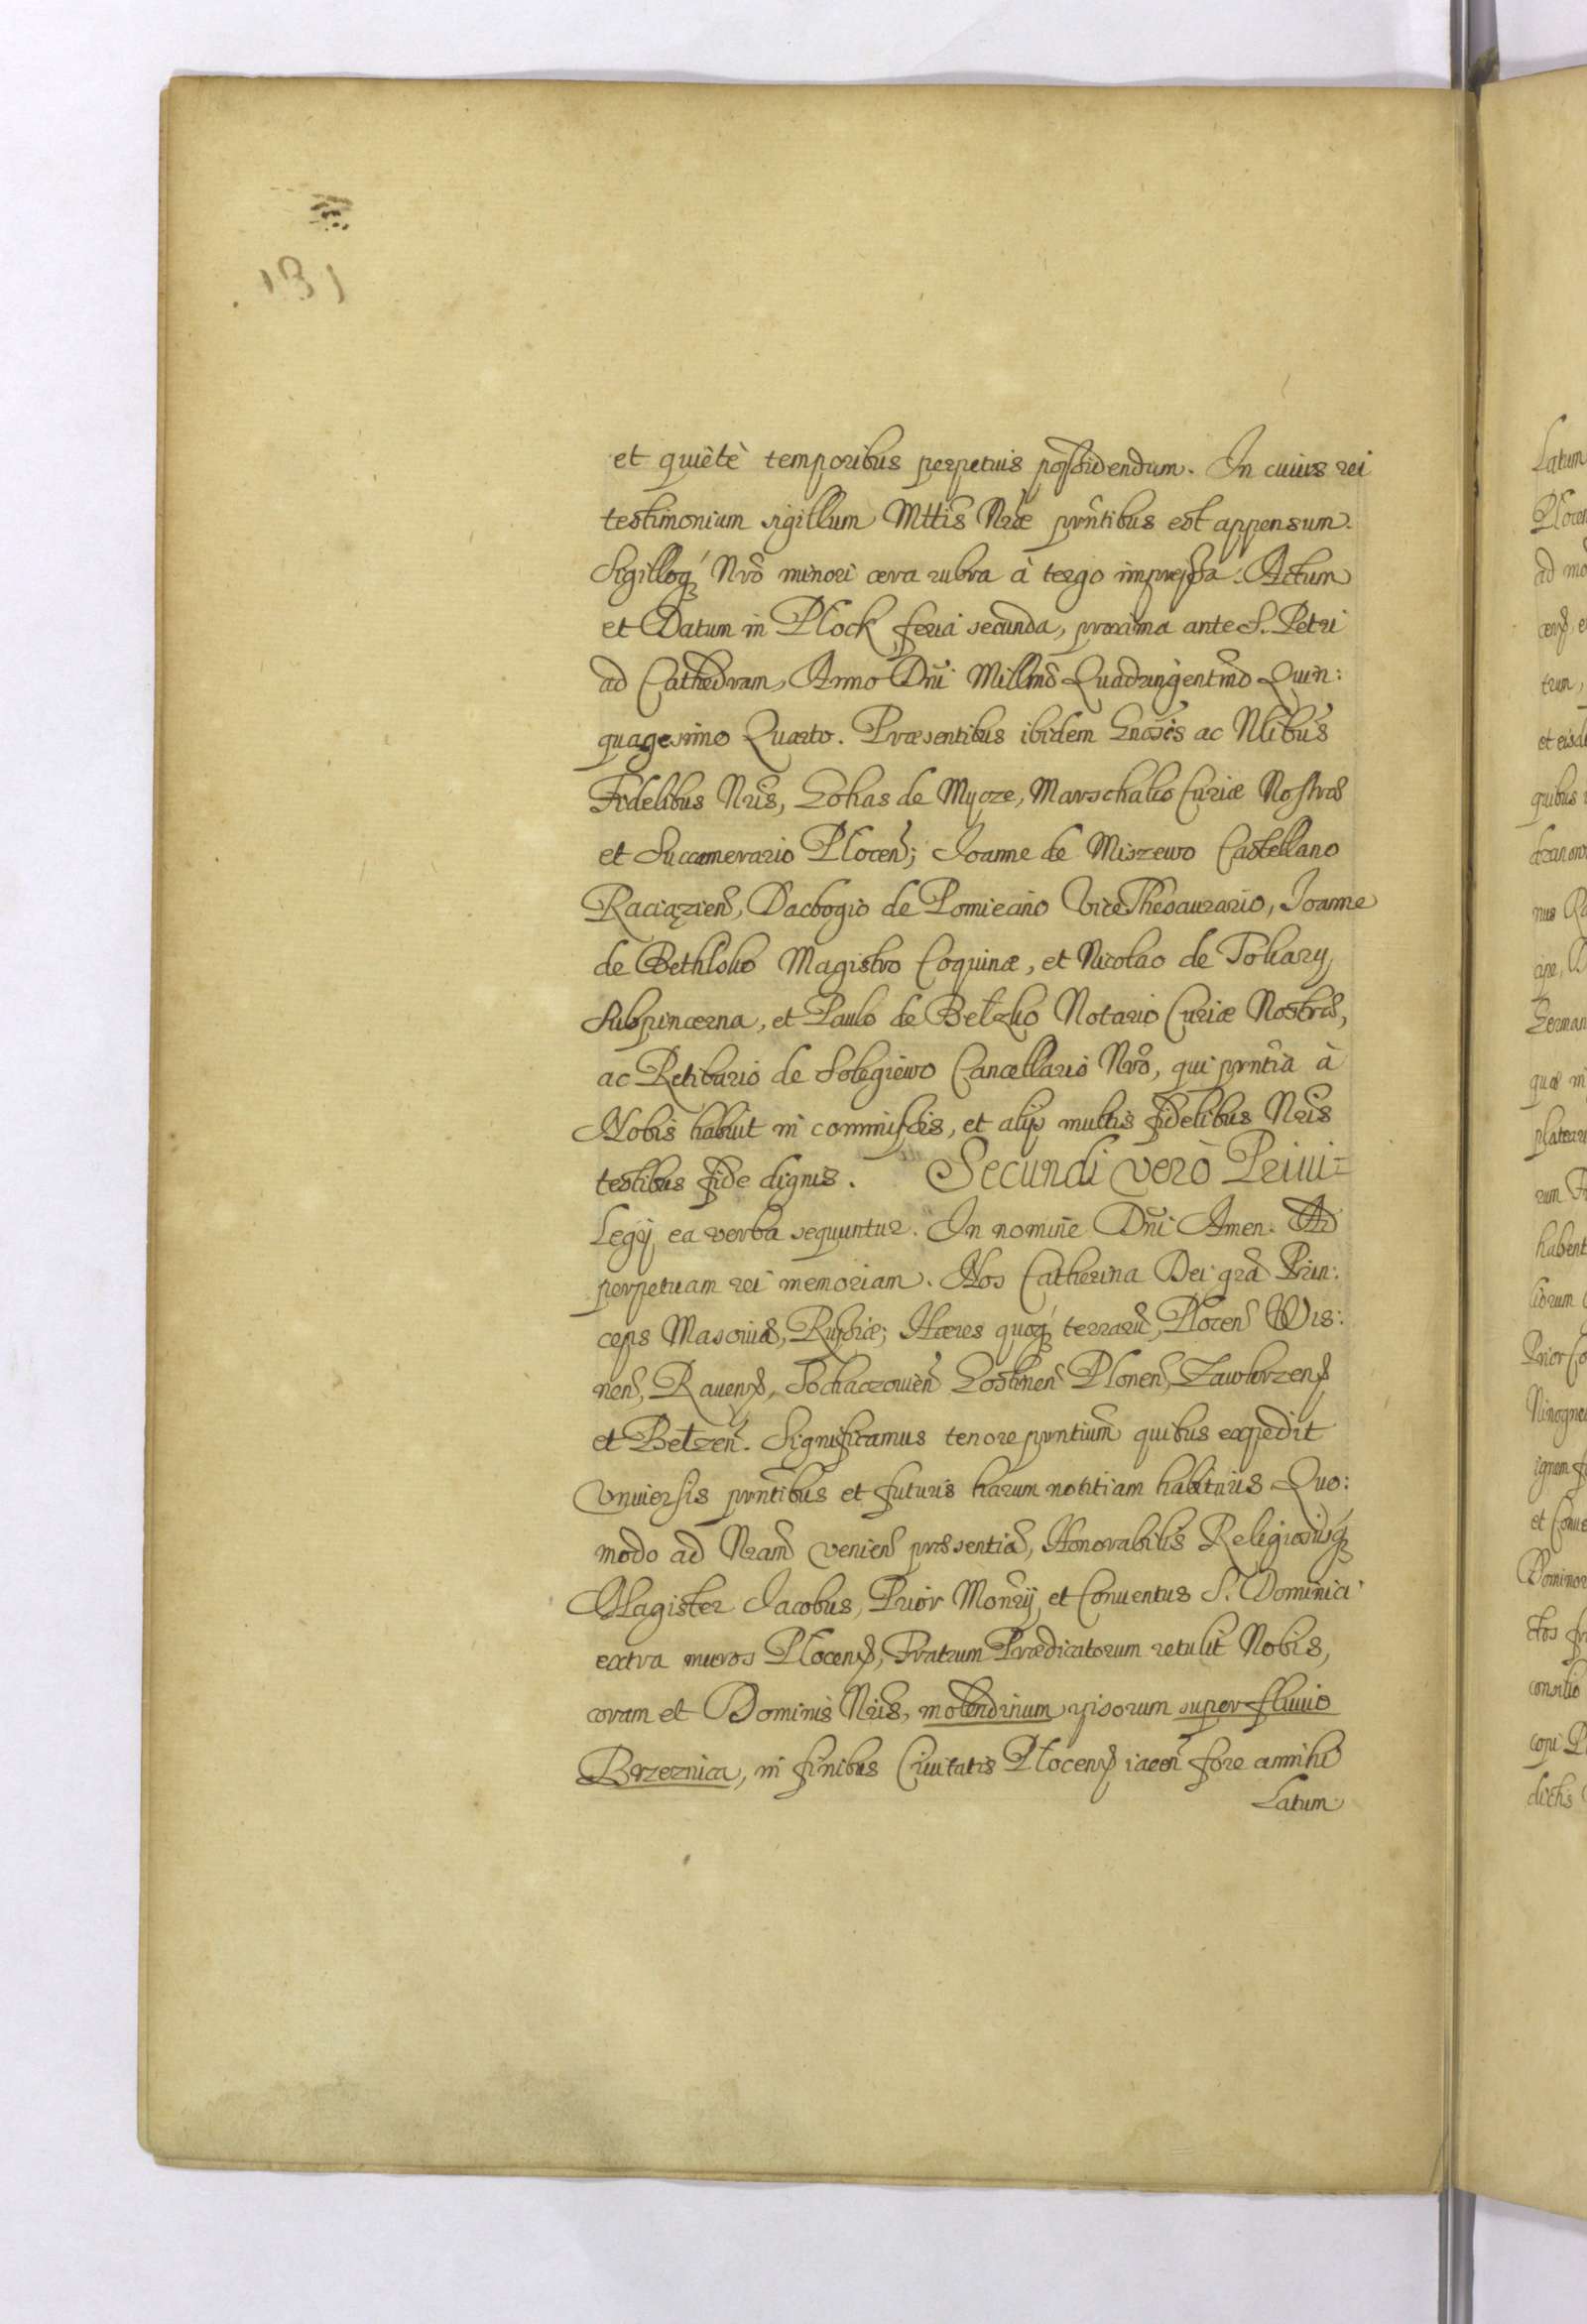 131
et quiètè temporibus perpetuis possidendum. In cuius rei
testimonium sigillum Mttis Nræ prntibus est appensum.
Sigilloq́ Nrõ minori cera rubra à tergo impressa. Actum
et Datum in Plock feria secunda, proxima ante S. Petri
ad Cathedram, Anno Dni Millmõ Quadringentmõ Quin:
quagesimo Quarto. Præsentibus ibidem Gnosis ac Nlibus
Fidelibus Nris, Gohas de Mycze, Marschalco Curiæ Nostræ
et Succamerario Plocen; Joanne de Miszewo Castellano
Raciązien, Dacbogio de Pomiecino ViceThesaurario, Joanne
de Bethlsko Magistro Coquinæ, et Nicolao de Tokary,
Subpincerna, et Paulo de Betzko Notario Curiæ Nostræ,
ac Retibario de Golegiewo Cancellario Nrõ, qui prntia à
Nobis habuit in commissis, et alijs multis fidelibus Nris
testibus fide dignis. Secundi verò Priui=
Legij ea verba sequuntur. In nomine Dni Amen. Ad
perpetuam rei memoriam. Nos Catherina Dei grã Prin:
ceps Masouiæ, Russiæ; Hæres quoq́ terrarũ, Plocen Wis:
nen, Rauens, Sochaczouien Gostinen Plonen, Zawkrzens
et Betzen. Significamus tenore prntium quibus expedit
Vniuersis prntibus et futuris harum notitiam habituris Quo:
modo ad Nram veniens præsentiã, Honorabilis Religiosusq́
Magister Jacobus, Prior Monrij et Conuentus S. Dominici
extra muros Plocens, Fratrum Prædicatorum retulit Nobis,
coram et Dominis Nris, molendinum ipsorum super fluuio
Brzeznica, in finibus Ciuitatis Plocens iacen fore annihi
Latum